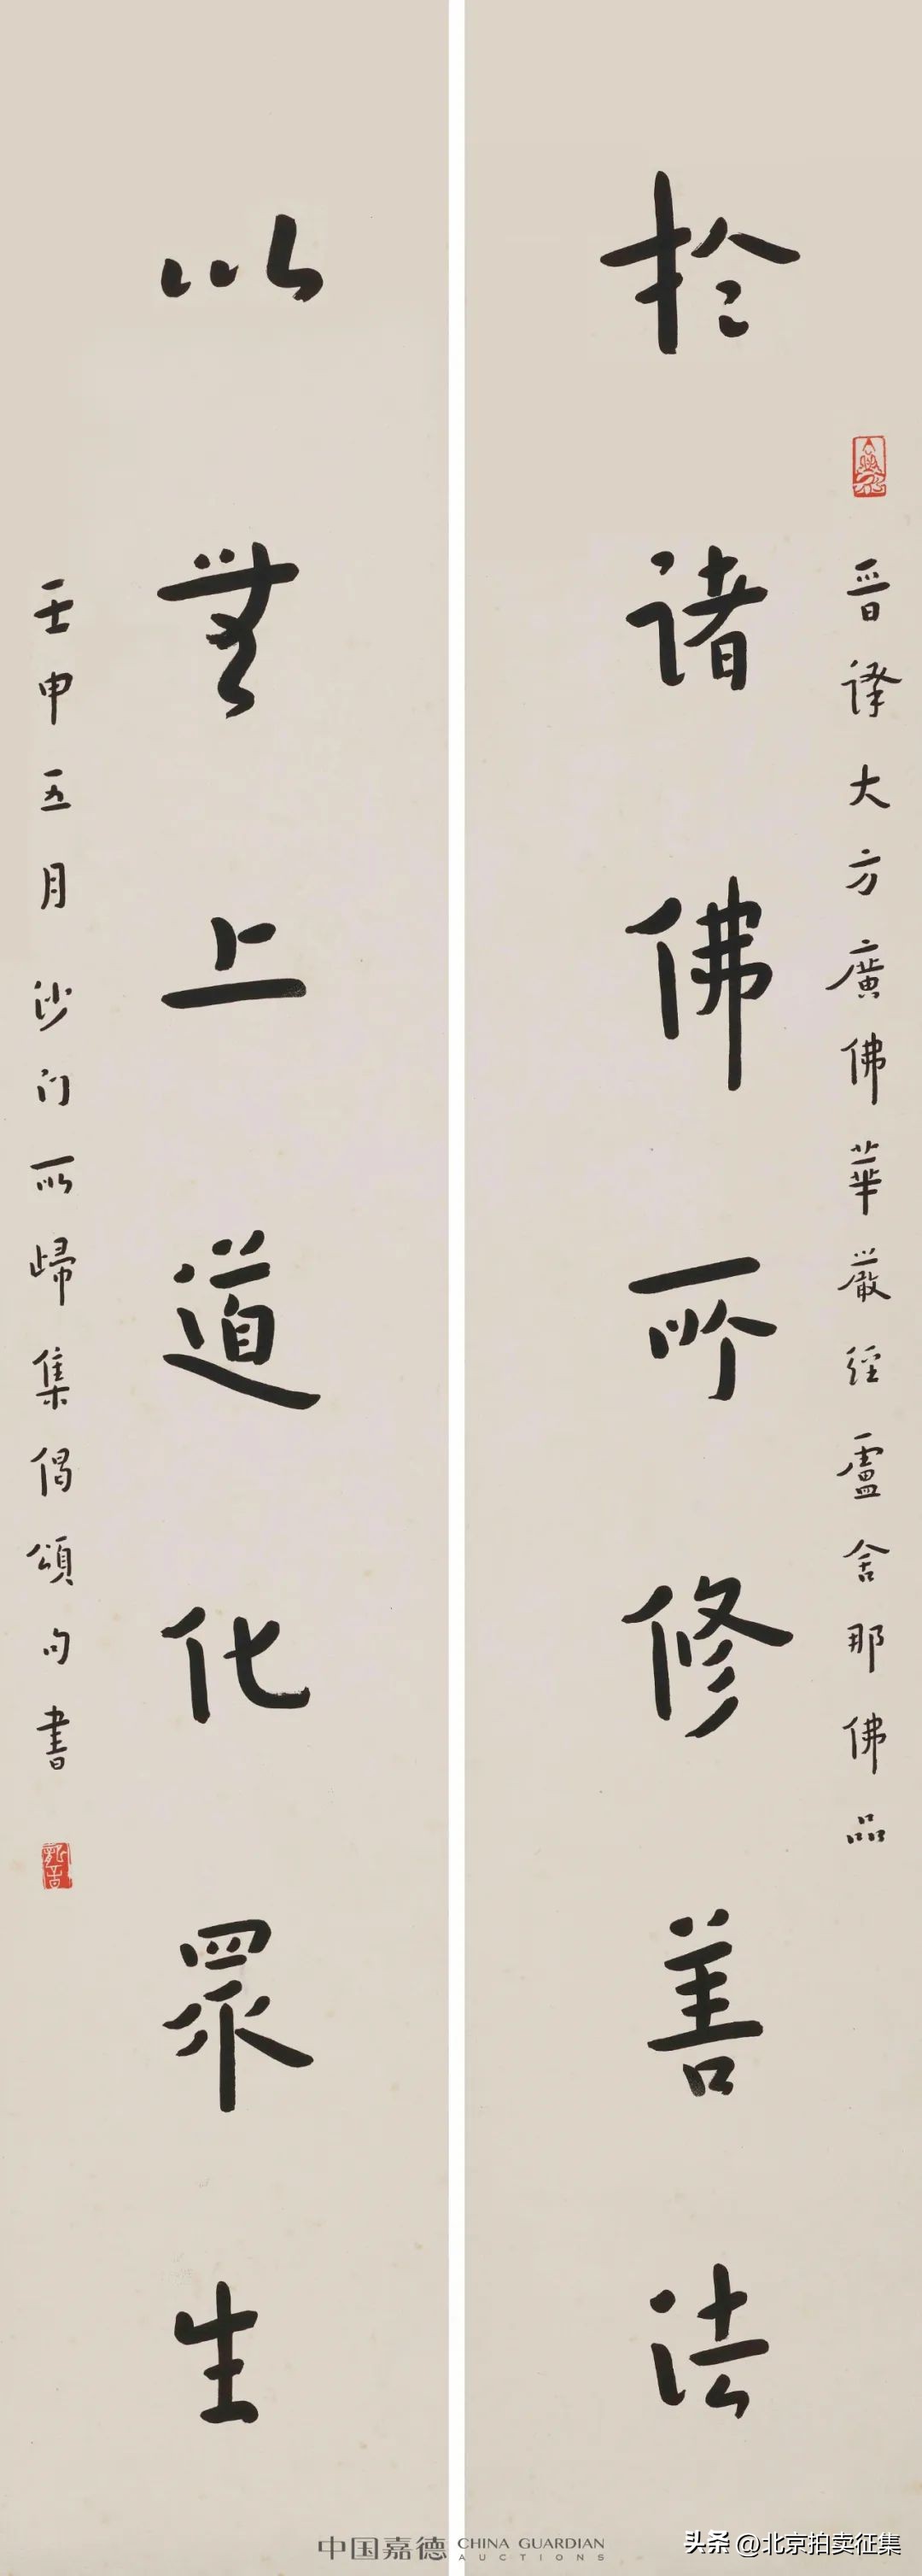 晉译大方廣佛華嚴經盧舍那佛品
於诸佛所修善法
以無上道化眾生
壬申五月沙门所歸集偈頌句書
中国嘉德 CHINA GUARDIAN AUCTIONS
头条 @北京拍卖征集